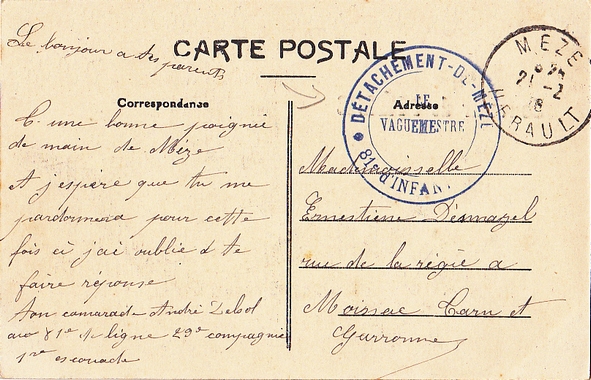 Le bonjour a tes parents
CARTE POSTALE
Correspondance
Adresse
DÉTACHEMENT-DE-MÈZE
LE
VAGUEMESTRE
81e d'INFAN
MEZE
8 25
21-2
18
HERAULT
une bonne poignie
de main de Mèze
Et j'espère que tu me
pardonnera pour cette
fois ci j'ai oublié d te
faire réponse
Ton camarade André Delsol
au 81e de ligne 29e compagnie
1re escouade
Mademoiselle
Ernestiene Démazel
rue de la régie a
Moissac Tarn et
Garronne